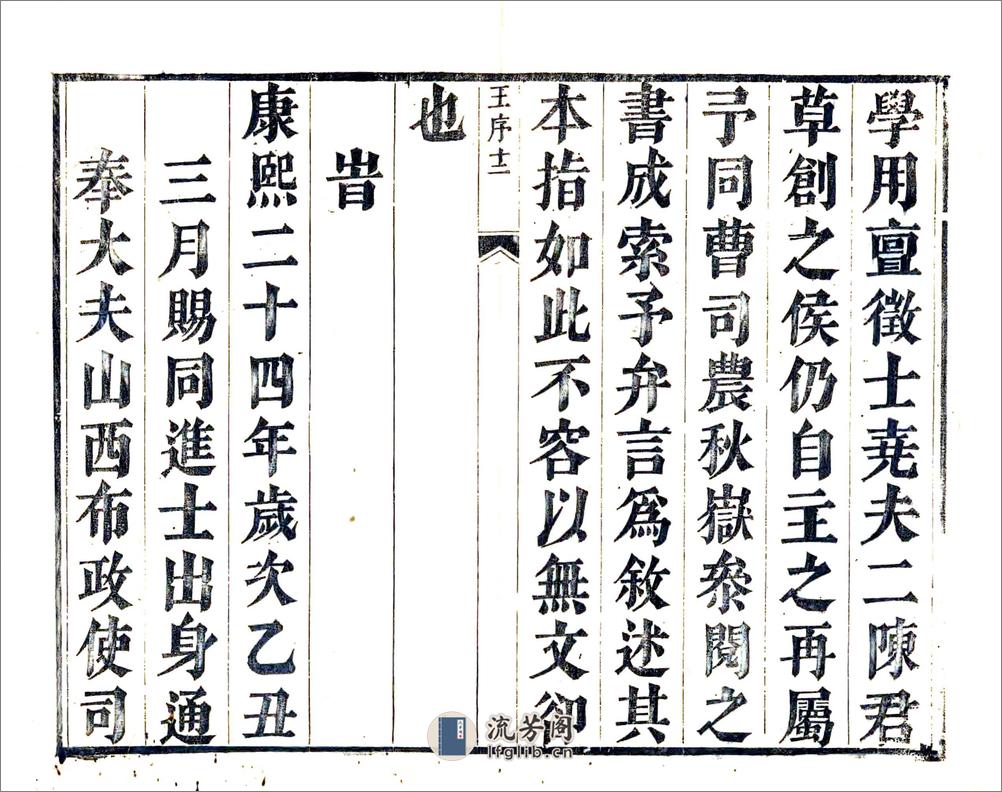 學用亶徵士堯夫二陳君
草創之侯仍自主之再屬
予同曹司農秋嶽叅閱之
書成索予弁言爲敘述其
本指如此不容以無文卻
王序十二
也
旹
康熙二十四年歲次乙丑
三月賜同進士出身通
奉大夫山西布政使司
流芳阁
lfglib.cn